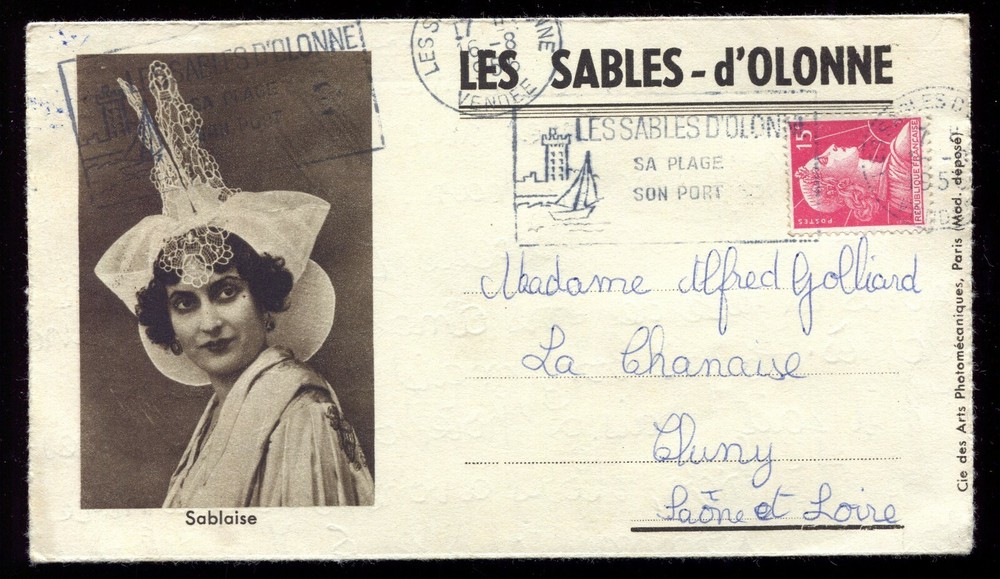 LES SABLES-d'OLONNE
LES SABLES D'OLONNE
SA PLAGE
SON PORT
VENDÉE
LES SABLES D'OLONNE
SA PLAGE
SON PORT
15F
POSTES
REPUBLIQUE FRANÇAISE
Madame Alfred Golliard
La Chanaise
Cluny
Saône et Loire
Sablaise
Cie des Arts Photomécaniques, Paris (Mod. déposé)